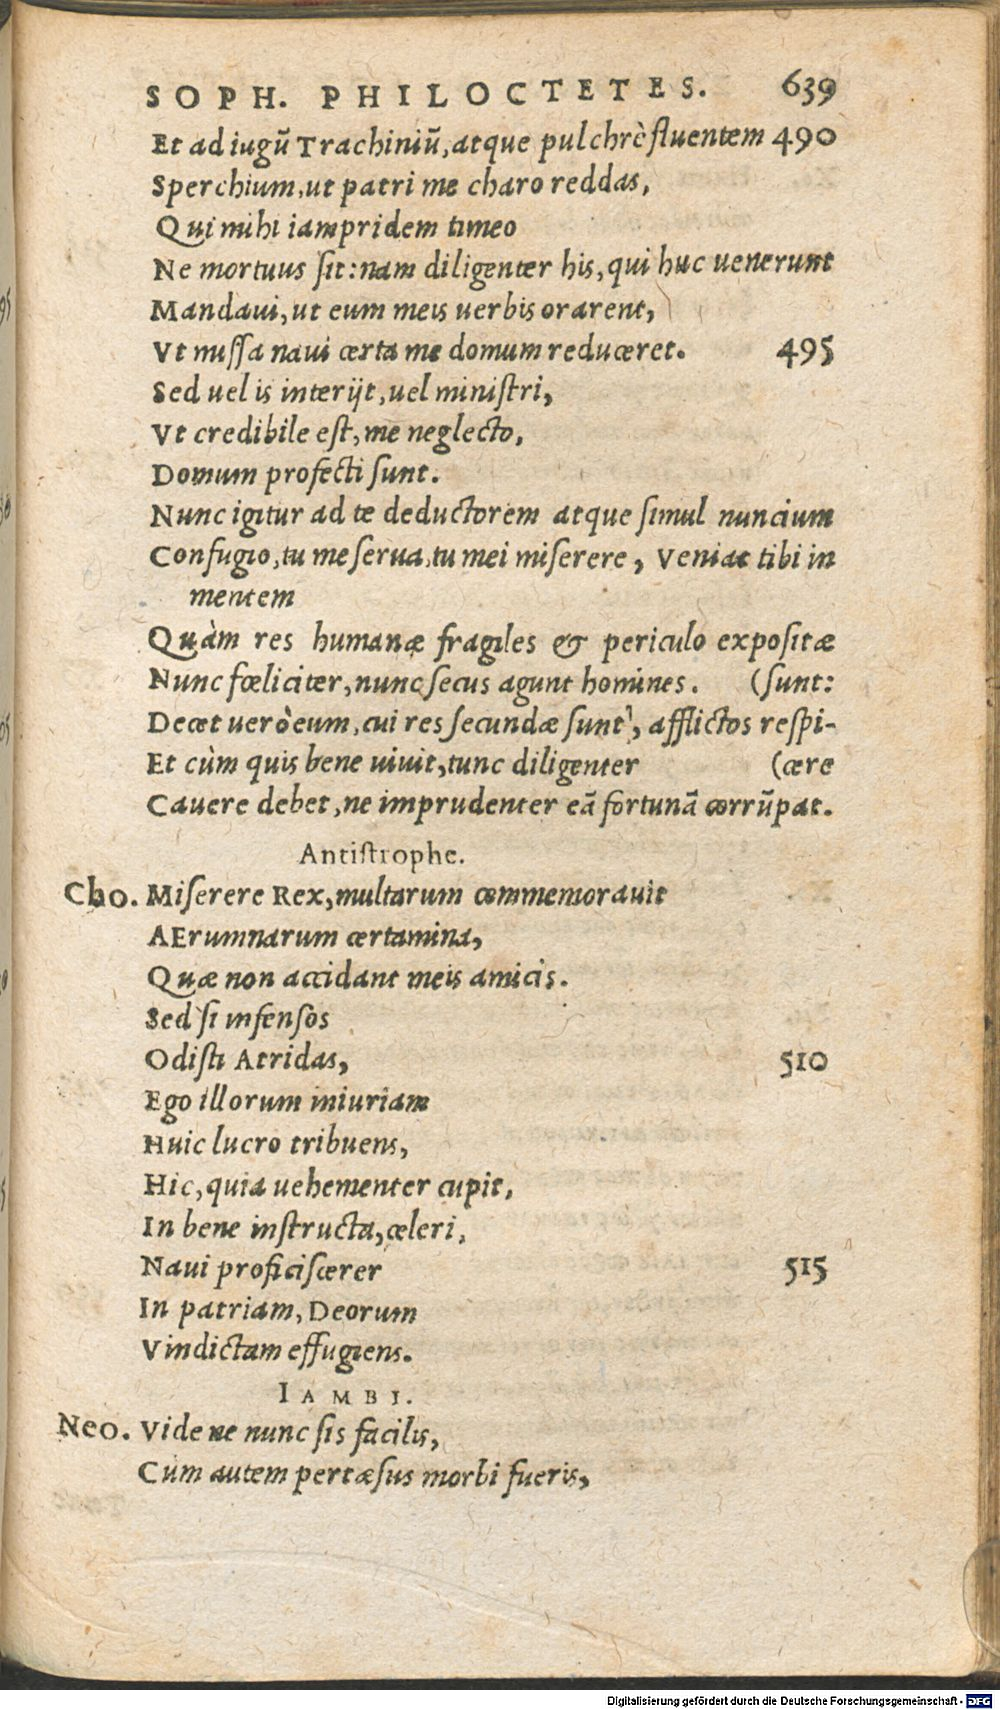 SOPH. PHILOCTETES. 639
Et ad iugũ Trachiniũ, atque pulchrè fluentem 490
Sperchium, ut patri me charo reddas,
Qui mihi iampridem timeo
Ne mortuus ſit: nam diligenter his, qui huc uenerunt
Mandaui, ut eum meis uerbis orarent,
Vt miſſa naui certa me domum reduceret. 495
Sed uel is interijt, uel miniſtri,
Vt credibile eſt, me neglecto,
Domum profecti ſunt.
Nunc igitur ad te deductorem atque ſimul nuncium
Confugio, tu me ſerua, tu mei miſerere, Veniat tibi in
mentem
Quàm res humanæ fragiles & periculo expoſitæ
Nunc fœliciter, nunc ſecus agunt homines. (ſunt:
Decet uerò eum, cui res ſecundæ ſunt, afflictos reſpi-
Et cùm quis bene uiuit, tunc diligenter (cere
Cauere debet, ne imprudenter eã fortunã corrũpat.
Antiſtrophe.
Cho. Miſerere Rex, multarum commemorauit
AErumnarum certamina,
Quæ non accidant meis amicis.
Sed ſi infenſos
Odiſti Atridas, 510
Ego illorum iniuriam
Huic lucro tribuens,
Hic, quia uehementer cupit,
In bene inſtructa, celeri,
Naui proficiſcerer 515
In patriam, Deorum
Vindictam effugiens.
IAMBI.
Neo. Vide ne nunc ſis facilis,
Cum autem pertæſus morbi fueris,
Digitalisierung gefördert durch die Deutsche Forschungsgemeinschaft - DFG